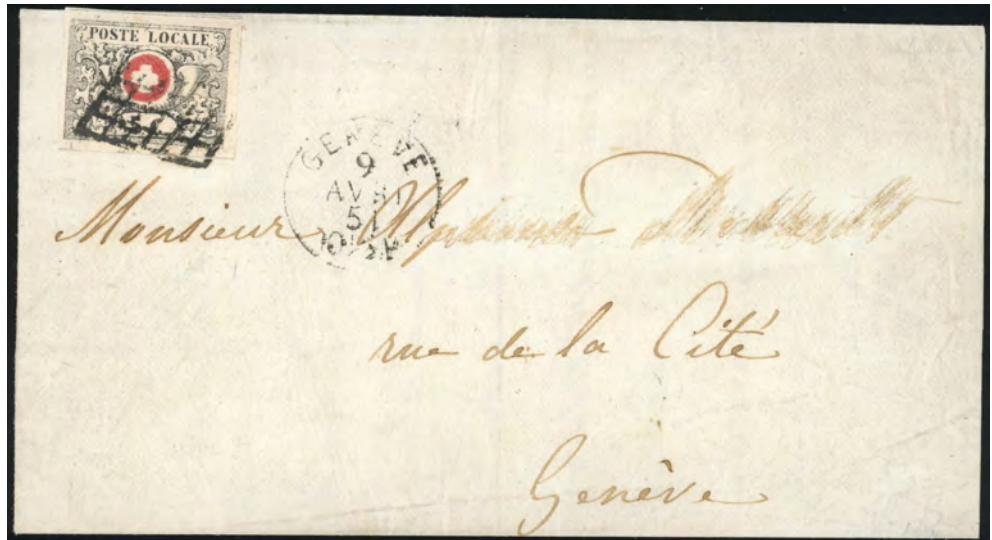 POSTE LOCALE
GENÈVE
9
51
Monsieur
rue de la Cité
Genève